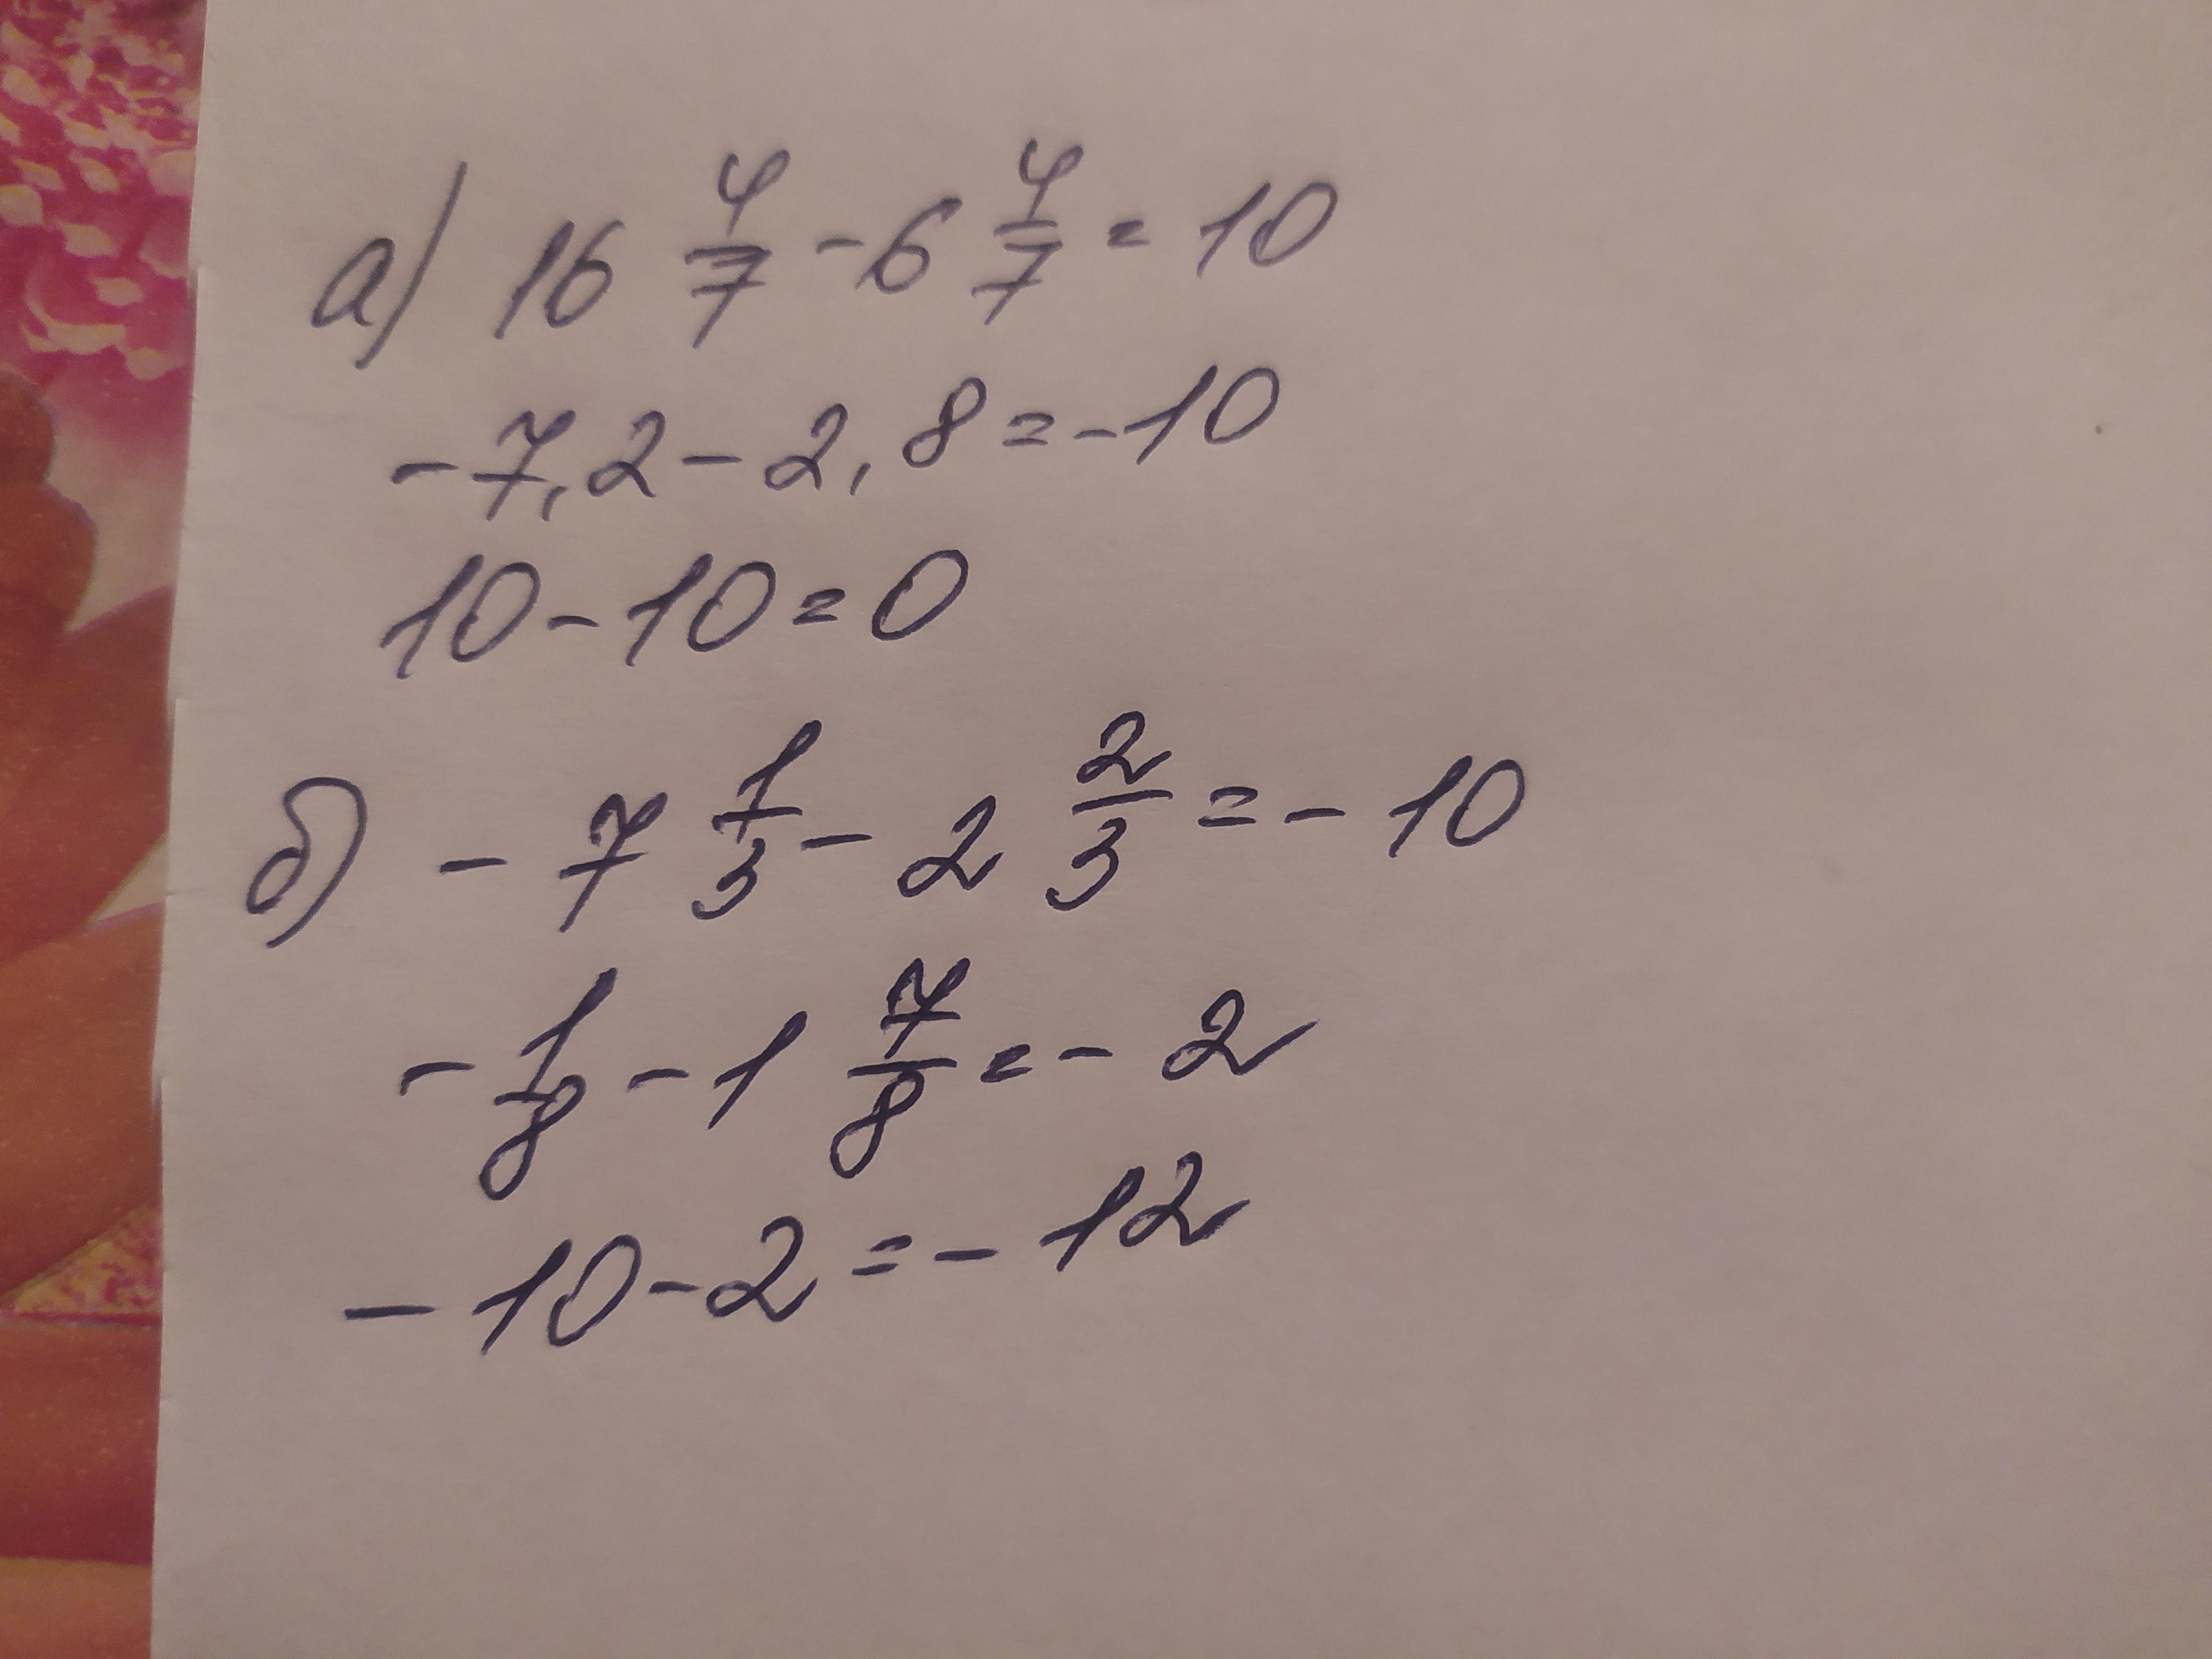 а) 16 4/7 - 6 4/7 = 10
- 7,2 - 2,8 = - 10
10 - 10 = 0
б) - 7 1/3 - 2 2/3 = - 10
- 1/8 - 1 7/8 = - 2
- 10 - 2 = - 12